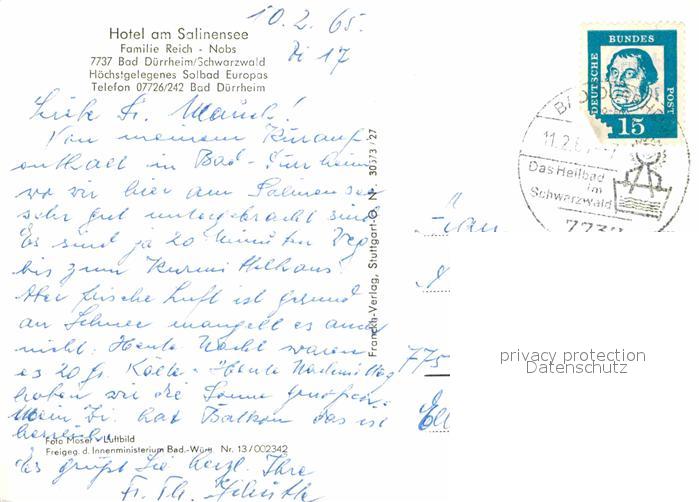 10.2.65.
Hotel am Salinensee
Familie Reich - Nobs
7737 Bad Dürrheim/Schwarzwald
Höchstgelegenes Solbad Europas
Telefon 07726/242 Bad Dürrheim
Zi 17
Liebe Fr. Mauch!
Von meinem Kurauf-
enthalt in Bad-Dürrheim
wo wir hier am Salinensee
sehr gut untergebracht sind
Es sind ja 20 Minuten Weg
bis zum Kurmittelhaus.
Aber frische Luft ist gesund
an Schnee mangelt es auch
nicht. Heute Nacht waren
es 20 Gr. Kälte. Heute Nachmittag
haben wir die Sonne genossen.
Mein Zi. hat Balkon das ist
herrlich.
Foto Moser - Luftbild
Freigeg. d. Innenministerium Bad.-Würt. Nr. 13/002342
Es grüßt Sie herzl. Ihre
Fr. Th.
Franckh-Verlag, Stuttgart-O, Nr. 30373/27
DEUTSCHE
BUNDES
POST
15
BAD DÜRRHEIM
11.2.65
Das Heilbad
im
Schwarzwald
7737
Frau
775
privacy protection
Datenschutz